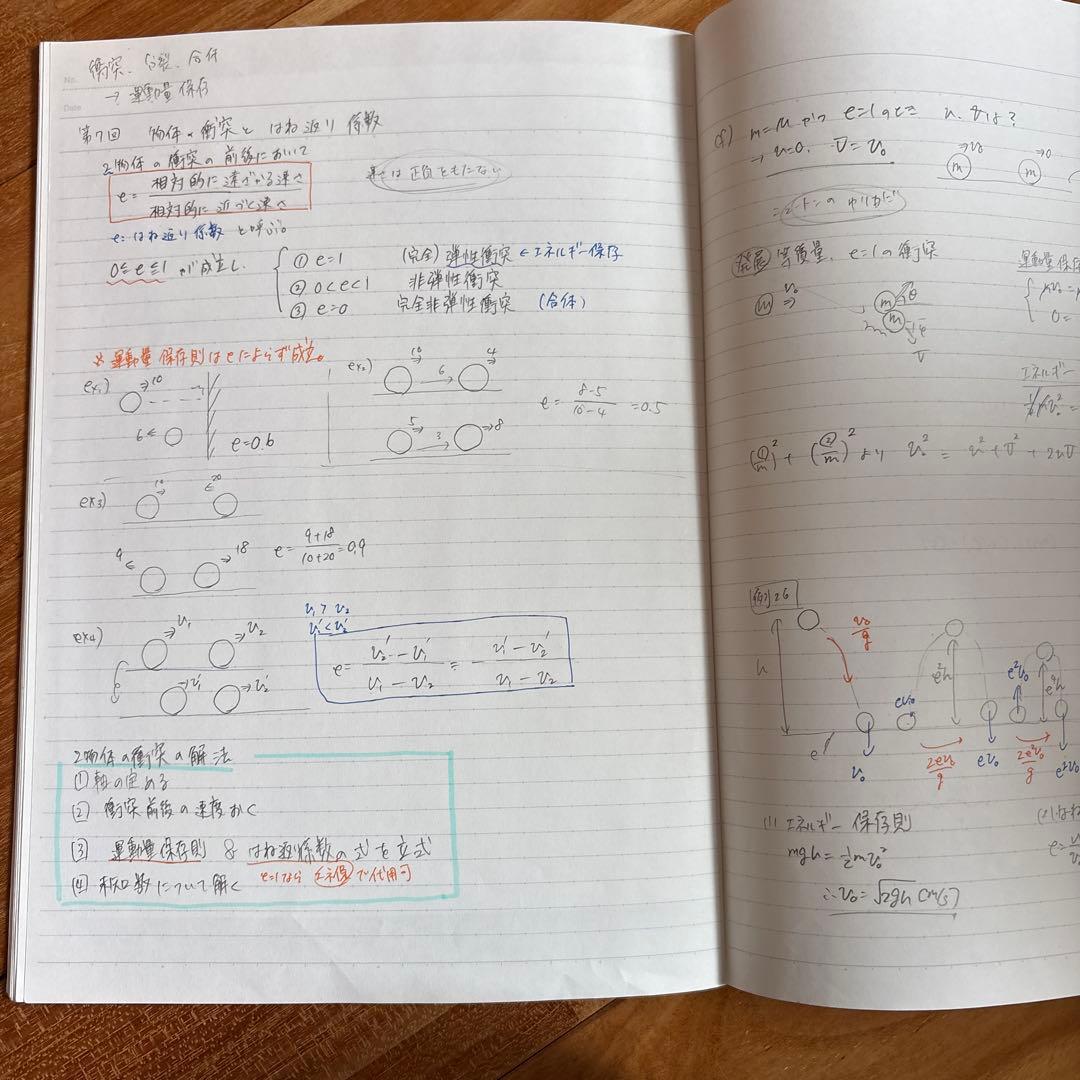 No.
Date
衝突、分裂、合体
→ 運動量保存
第7回 物体の衝突と はね返り係数
2物体の衝突の前後において
e = 相対的に遠ざかる速さ / 相対的に近づく速さ
速さは正負をもたない
e: はね返り係数 と呼ぶ。
0≦e≦1 が成立し、
① e=1 (完全)弾性衝突 ← エネルギー保存
② 0<e<1 非弾性衝突
③ e=0 完全非弾性衝突 (合体)
※ 運動量保存則はeによらず成立。
ex1)
10
6
e=0.6
ex2)
10 6 4
5 3 8
e = (8-5)/(10-4) = 0.5
ex3)
10 20
9 18
e = (9+18)/(10+20) = 0.9
ex4)
v₁ v₂
v₁' v₂'
v₁ > v₂
v₁' < v₂'
e = (v₂' - v₁')/(v₁ - v₂) = - (v₁' - v₂')/(v₁ - v₂)
2物体の衝突の解法
① 軸の定める
② 衝突前後の速度おく
③ 運動量保存則 & はね返り係数の式を立式
e=1なら エネ保 で代用可
④ 未知数について解く
m=M かつ e=1のとき
→ u=0, V=v₀
m v₀ m 0
=ニュートンのゆりかご
発展 等質量、e=1の衝突
m v₀
m θ
m
V
運動量保存
0=
エネルギー
(①/m)² + (②/m)² より v₀² = u² + V² + 2uV
例26
h
v₀/g
e
v₀
ev₀
e²h
2ev₀/g
ev₀
e²v₀
e⁴h
2e²v₀/g
e²v₀
(1) エネルギー保存則
mgh = ½mv₀²
∴ v₀ = √2gh (m/s)
e =